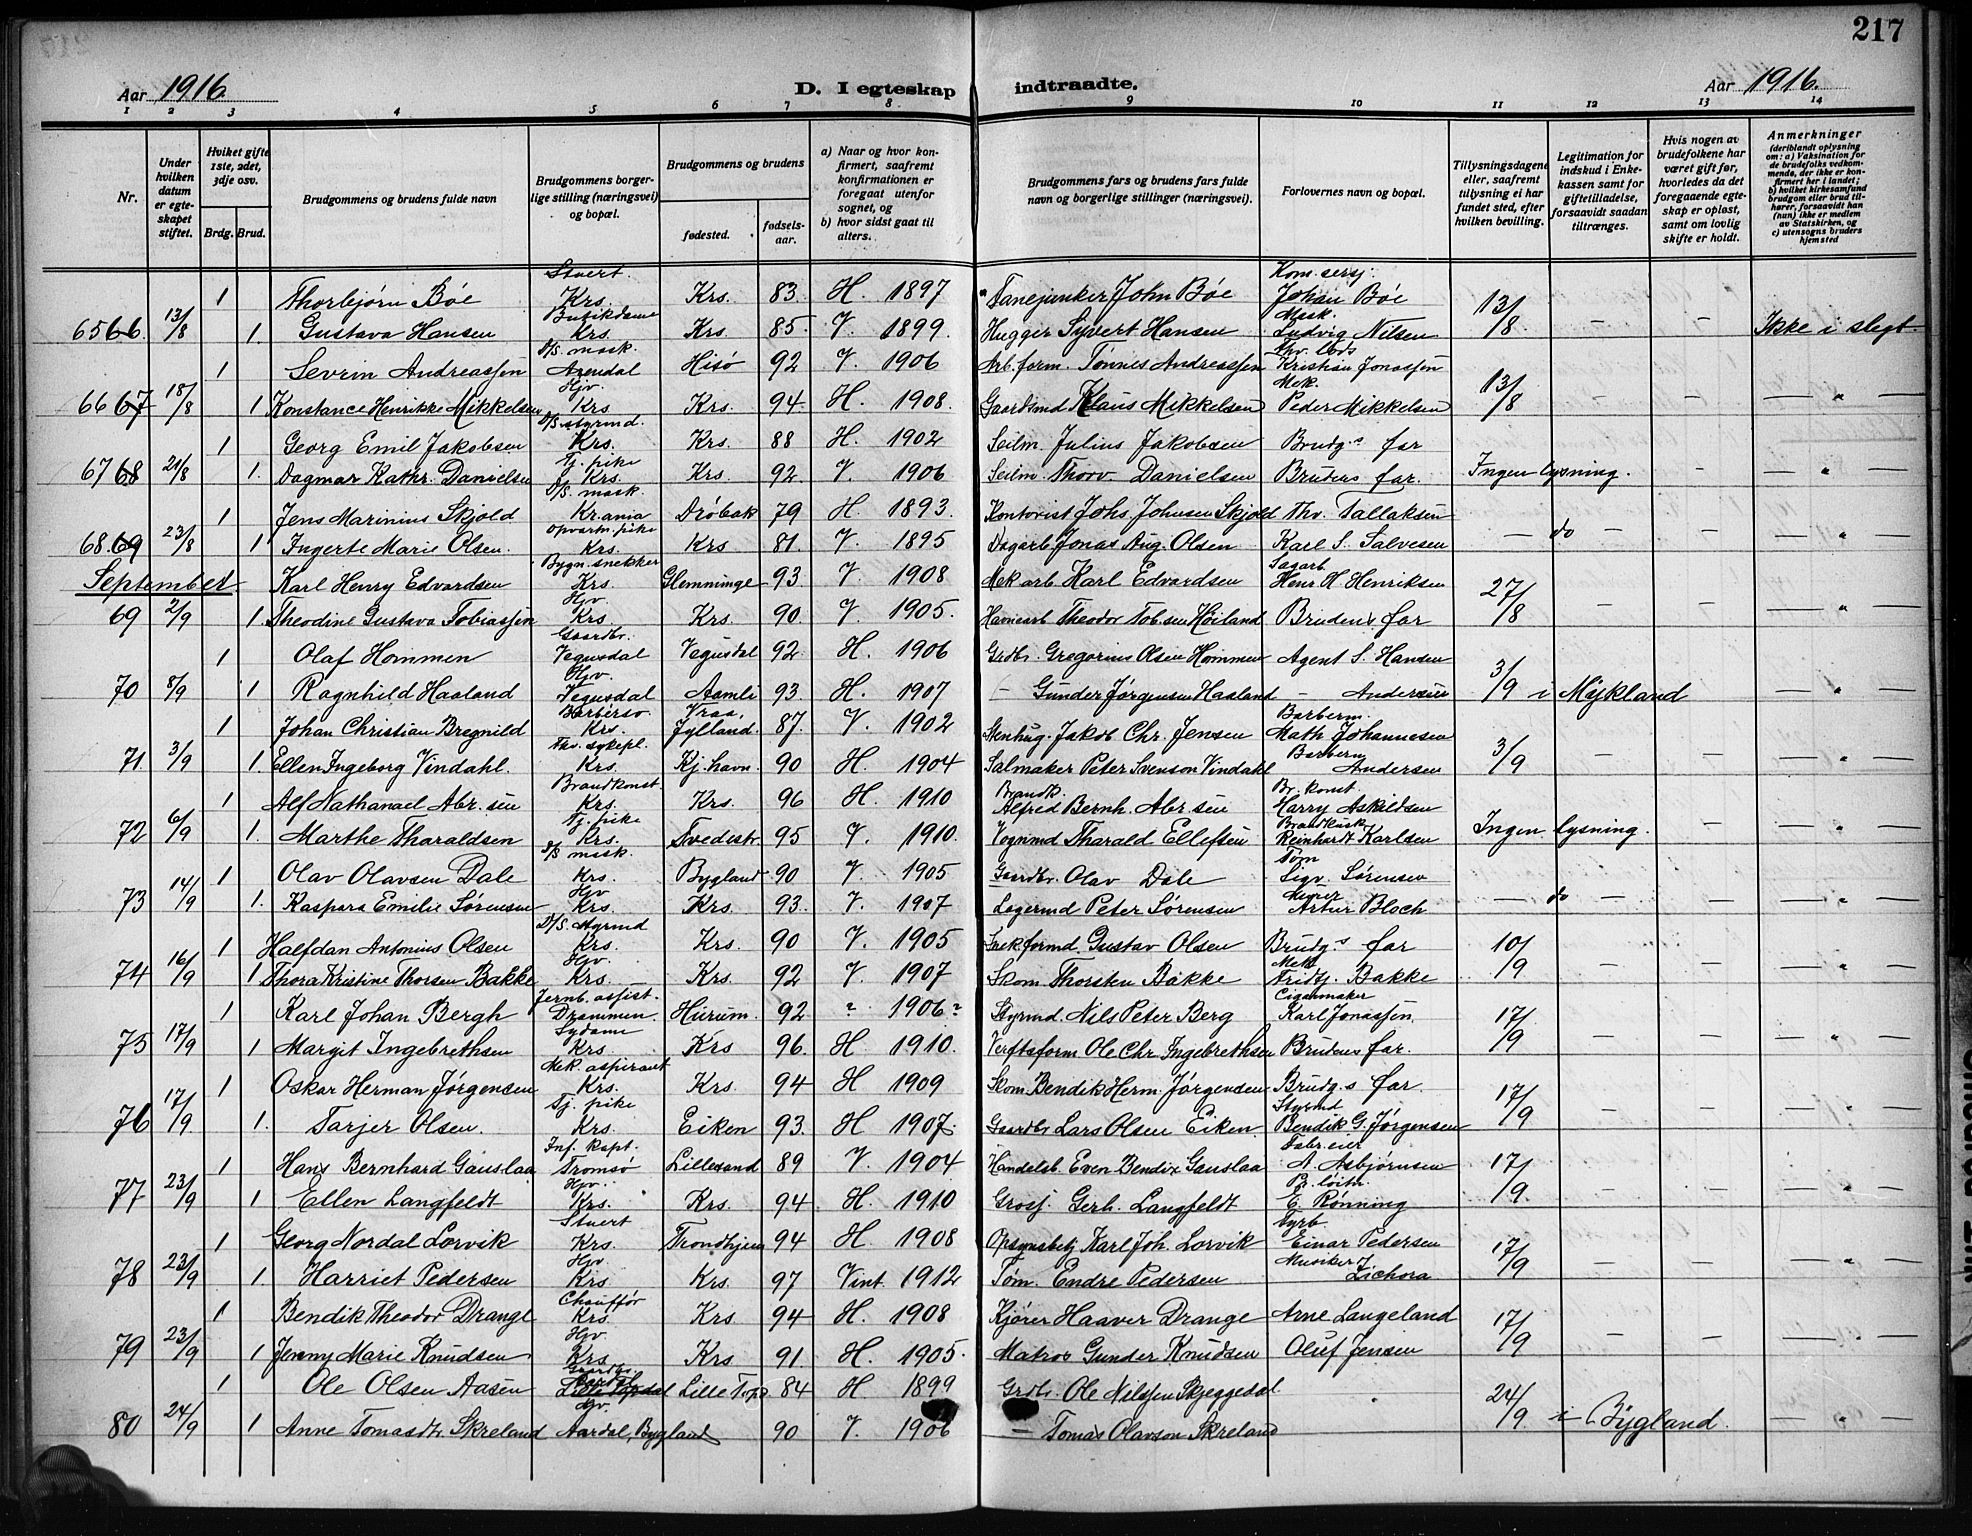 217
Aar 1916. D. I egteskap indtraadte. Aar 1916.
1 2 3 4 5 6 7 8 9 10 11 12 13 14
Nr.
Under hvilken datum er egteskapet stiftet.
Hviket gifte 1ste, 2det, 3dje osv.
Brdg. Brud.
Brudgommens og brudens fulde navn
Brudgommens borgerlige stilling (næringsvei) og bopæl.
Brudgommens og brudens
fødested. fødselsaar.
a) Naar og hvor konfirmert, saafremt konfirmationen er foregaat utenfor sognet, og
b) hvor sidst gaat til alters.
Brudgommens fars og brudens fars fulde navn og borgerlige stillinger (næringsvei).
Forlovernes navn og bopæl.
Tillysningsdagene eller, saafremt tillysning ei har fundet sted, efter hvilken bevilling.
Legitimation for indskud i Enkekassen samt for giftetilladelse, forsaavidt saadan tiltrænges.
Hvis nogen av brudefolkene har været gift før, hvorledes da det foregaaende egteskap er opløst, samt om lovlig skifte er holdt.
Anmerkninger (deriblandt oplysning om: a) Vaksination for de brudefolks vedkommende, der ikke er konfirmert her i landet; b) hvilket kirkesamfund brudgom eller brud tilhører, forsaavidt han (hun) ikke er medlem av Statskirken, og c) utensogns bruders hjemsted
1 Thorbjørn Bøe Stuert. Krs. Krs. 83. H. 1897 Fanejunker John Bøe Kom. sersj. Johan Bøe
65 66 13/8 1. Gustava Hansen Butikdame Krs. Krs. 85. V. 1899. Hugger Syvert Hansen Mask. Ludvig Nilsen 13/8 – – Ikke i slegt.
1 Sevrin Andreassen D/S. mask. Arendal Hisø 92 V. 1906 Arb.form. Tønnes Andreassen Kristian Jonassen
66 67 18/8 1 Konstance Henrikke Mikkelsen Hjv. Krs Krs. 94. H. 1908. Gaardsmd Klaus Mikkelsen Mek. Peder Mikkelsen 13/8 – – – " –
1 Georg Emil Jakobsen D/S. styrmd. Krs. Krs. 88 H. 1902 Seilm. Julius Jakobsen Brudg.s far
67 68 21/8 1. Dagmar Kathr. Danielsen Tj. pike Krs. Krs. 92. V. 1906 Seilm. Thorv. Danielsen Brudens far. Ingen lysning. – – " –
1 Jens Marinius Skjold D/S. mask. Kr.ania Drøbak 79 H. 1893. Kontorist Johs. Johnsen Skjold Thv. Tallaksen
68. 69 23/8 1 Ingerte Marie Olsen. Opvartn.pike Krs. Krs 81. V. 1895 Dagarb. Jonas Aug. Olsen Karl S. Salvesen – do – – – " –
September. Karl Henry Edvardsen Bygn.snekker Krs Glemminge 93 V. 1908 Mek arb Karl Edvardsen Sagarb. Henr H. Henriksen
69 2/9 1. Theodine Gustava Tobiassen Hjv Krs Krs. 90. V. 1905. Havnearb Theodor Tob.sen Høiland Brudens far 27/8 – – – " –
1 Olaf Hommen Gaardbr. Vegusdal Vegusdal 92. H. 1906 Grdbr. Gregorius Olsen Hommen Agent S. Hansen
70 8/9 1 Ragnhild Haaland Hjv. Vegusdal Aamli 93. H. 1907 – Gunder Jørgensen Haaland – Andersen 3/9 i Mykland – " –
1 Johan Christian Bregnild Barbersv. Krs. Vraa, Jylland. 87. V. 1902 Stenhug. Jakob Chr. Jensen Barberm. Math Johannesen
71 3/9 1. Ellen Ingeborg Vindahl. Fhv. sykepl. Krs. Kj.havn. 90 H. 1904 Salmaker Peter Svenson Vindahl Barberm Andersen 3/9 – – – " –
1 Alf Nathanael Abr.sen Brandkonst. Krs. Krs. 96 H. 1910 Brandk. Alfred Bernh. Abr.sen Br. konst. Harry Askildsen
72 6/9 1. Marthe Tharaldsen Tj. pike Krs. Tvedestr. 95 V. 1910. Vognmd Tharald Ellefsen Brandkusk Reinhardt Karlsen Ingen lysning. – – " –
1 Olav Olavsen Dale D/S mask. Krs. Bygland 90 V. 1905 Gaardbr. Olav Dale Tøm Sigv. Sørensen
73 14/9 1. Kaspara Emilie Sørensen Hjv Krs. Krs. 93. V. 1907 Lagermd Peter Sørensen Murer Artur Bloch – do – – – " –
1 Halfdan Antonius Olsen D/S. styrmd Krs. Krs. 90 V. 1905 Snek formd. Gustav Olsen Brudg.s far
74 16/9 1 Thora Kristine Thorsen Bakke Hjv. Krs Krs. 92 V. 1907 Skom Thorsten Bakke Mek Fridtj. Bakke 10/9 – – – " –
1 Karl Johan Bergh Jernb. assist. Drammen. Hurum. 92 ? 1906? Styrmd. Nils Peter Berg Cigarmaker Karl Jonassen.
75 17/9 1 Margit Ingebrethsen Sydame Krs Krs 96. H 1910. Verftsform Ole Chr Ingebrethsen Brudens far. 17/9 – – – " –
1 Oskar Herman Jørgensen Mek. aspirant Krs. Krs. 94 H 1909 Skom. Bendik Herm. Jørgensen Brudg.s far
76 17/9 1. Tarjer Olsen. Tj. pike Krs. Eiken 93. H 1907. Gaardbr Lars Olsen Eiken. Styrmd Bendik G. Jørgensen 17/9 – – – " –
1 Hans Bernhard Gauslaa Inf. kapt. Tromsø Lillesand 89 V. 1904 Handelsb. Even Bendix Gauslaa Fabr.eier A. Asbjørnsen
77 23/9 1 Ellen Langfeldt Hjv. Krs. Krs. 94 H. 1910 Grosj. Gerh. Langfeldt Pr. løitn. E. Rønning 17/9. – – – " –
1 Georg Nordal Lorvik Stuert Krs. Trondhjem 94 H. 1908 Opsynsbetj Karl Joh. Lorvik Fyrb Einar Pedersen
78 23/9 1 Harriet Pedersen Hjv Krs Krs. 97 Vint. 1912 Tøm. Endre Pedersen Musiker J. Zichora 17/9 – – – " –
1 Bendik Theodor Drange Chauffør Krs. Krs 94 H. 1908 Kjører Haaver Drange Arne Langeland
79 23/9 1 Jenny Marie Knudsen Hjv. Krs Krs 91. H. 1905. Matros Gunder Knudsen Oluf Jensen 17/9 – – – " –
1 Ole Olsen Aasen Gaardbr. Lille Topdal Lille Top. 84 H 1899 Grdbr. Ole Nilssen Skjeggedal
80 24/9 1 Anne Tomasdtr. Skreland Hjv. Aardal, Bygland 90 V. 1906 – Tomas Olavson Skreland 24/9 i Bygland. – " –